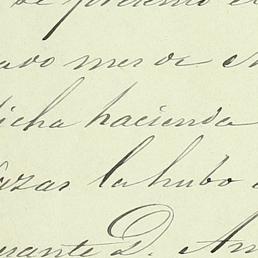 se presento e
avo mes de
dicha hacienda
azas la hubo
rante D. An